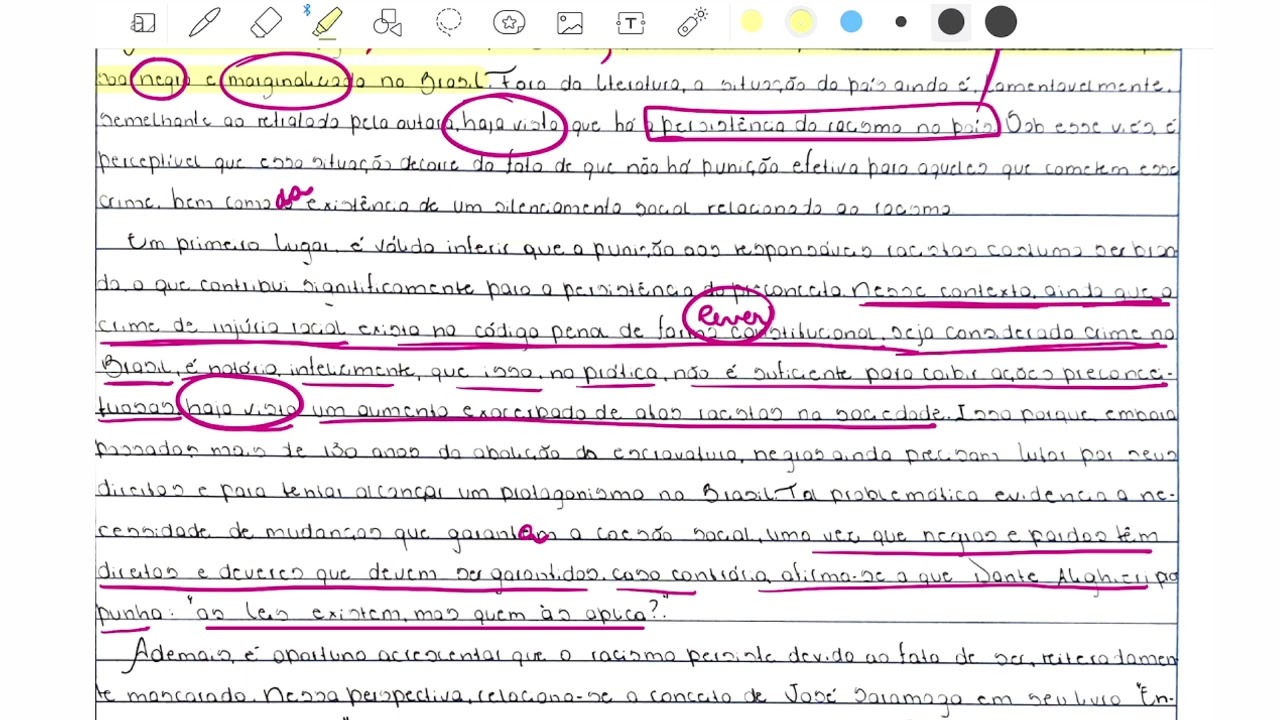 negro e marginalizado no Brasil. Fora da literatura, a situação do país ainda é, lamentavelmente,
semelhante ao retratado pela autora, haja vista que há a persistência do racismo no país. Sob esse viés, é
perceptível que essa situação decorre do fato de que não há punição efetiva para aqueles que cometem esse
crime, bem como da existência de um silenciamento social relacionado ao racismo.
Em primeiro lugar, é válido inferir que a punição aos responsáveis racistas costuma ser bran-
da, o que contribui significamente para a persistência do preconceito. Nesse contexto, ainda que o
Rever
crime de injúria racial exista no código penal de forma constitucional, seja considerado crime no
Brasil, é notório, infelizmente, que isso, na prática, não é suficiente para coibir ações preconcei-
tuosas, haja vista um aumento exacerbado de atos racistas na sociedade. Isso porque, embora
passados mais de 130 anos da abolição da escravatura, negros ainda precisam lutar por seus
direitos e para tentar alcançar um protagonismo no Brasil. Tal problemática evidencia a ne-
cessidade de mudanças que garantam a coesão social, uma vez que negros e pardos têm
direitos e deveres que devem ser garantidos, caso contrário, afirma-se o que Dante Alighieri pro
punha: "as leis existem, mas quem às aplica?".
Ademais, é oportuno acrescentar que o racismo persiste devido ao fato de ser, reiteradamen
te mascarado. Nessa perspectiva, relaciona-se o conceito de José Saramago em seu livro "En-